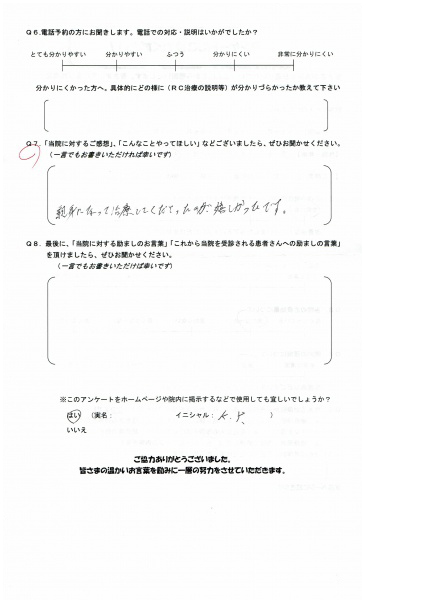 Q6.電話予約の方にお聞きします。電話での対応・説明はいかがでしたか？
とても分かりやすい 分かりやすい ふつう 分かりにくい 非常に分かりにくい
分かりにくかった方へ。具体的にどの様に（RC治療の説明等）が分かりづらかったか教えて下さい
Q7.「当院に対するご感想」、「こんなことやってほしい」などございましたら、ぜひお聞かせください。
（一言でもお書きいただければ幸いです）
親身になって治療してくださったのが嬉しかったです。
Q8. 最後に、「当院に対する励ましのお言葉」「これから当院を受診される患者さんへの励ましの言葉」
を頂けましたら、ぜひお聞かせください。
（一言でもお書きいただけば幸いです）
※このアンケートをホームページや院内に掲示するなどで使用しても宜しいでしょうか？
はい （実名： イニシャル： K.Y. ）
いいえ
ご協力ありがとうございました。
皆さまの温かいお言葉を励みに一層の努力をさせていただきます。